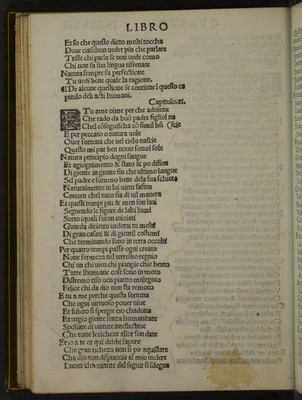 LIBRO
Et so che questo dicto molti toccha
Doue ciaschun ueder piu che parlare
Triste chi parla se non uede como
Chi non sa sua lingua rifrenare
Natura sempre fa perfectione
Tu uedi bene quale la ragione.
De alcune questione se contiene i questo ca
pitulo deli acti humani. Capitulo.xi.
Tu ame oime per che aduiene
Che rado da buõ padre figliol na
E per peccato o natura uole
Ouer fortuna che nel cielo nascie
Questo mi par ben nouo sottol sole
Natura principio dogni sangue
Di giente in giente fin che ultimo langue
Sel padre e sommo bene dela sua schiera
Naturalmente in lui uirtu fassina
Et questi tempi piu & men son lati
Seguendo le figure de lalti lumi
Sotto iquali furon iniziati
Guarda diritto uederai tu molti
Di gran casati & di gientil costumi
Che terminando sono in terra occolti
Per quatro tempi passo ogni creato
None fermeza nel terrestro regnio
Chi ua chi uien chi piangie chie beato
Tutte lhumane cose sono in moto
Destremo riso uen pianto malignio
Felice chi da dio non sta remoto
Et tu a me perche questa fortuna
Che ogni uirtuoso pouer uiue
Et subito si spergie cio chaduna
Et uegio giente senza humanitate
Spoliate di uirtute intellectiue
Che tutte le richeze allor son date
Et io a te ce qui debbi sapere
Che gran richeza non si po aquistare
Cha dio non dispiaccia al mio uedere
Luom cha uirtute del seguir si sdegna